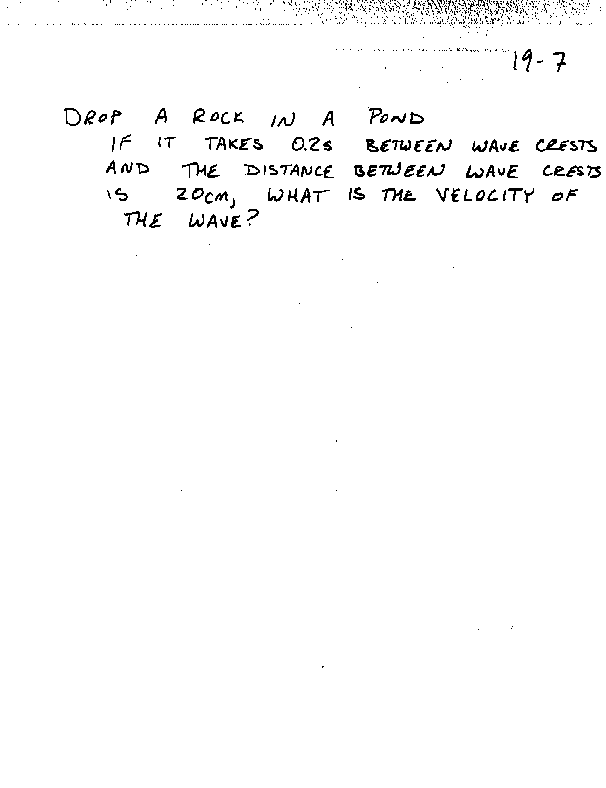 19-7
DROP A ROCK IN A POND
IF IT TAKES 0.2s BETWEEN WAVE CRESTS
AND THE DISTANCE BETWEEN WAVE CRESTS
IS 20cm, WHAT IS THE VELOCITY OF
THE WAVE?